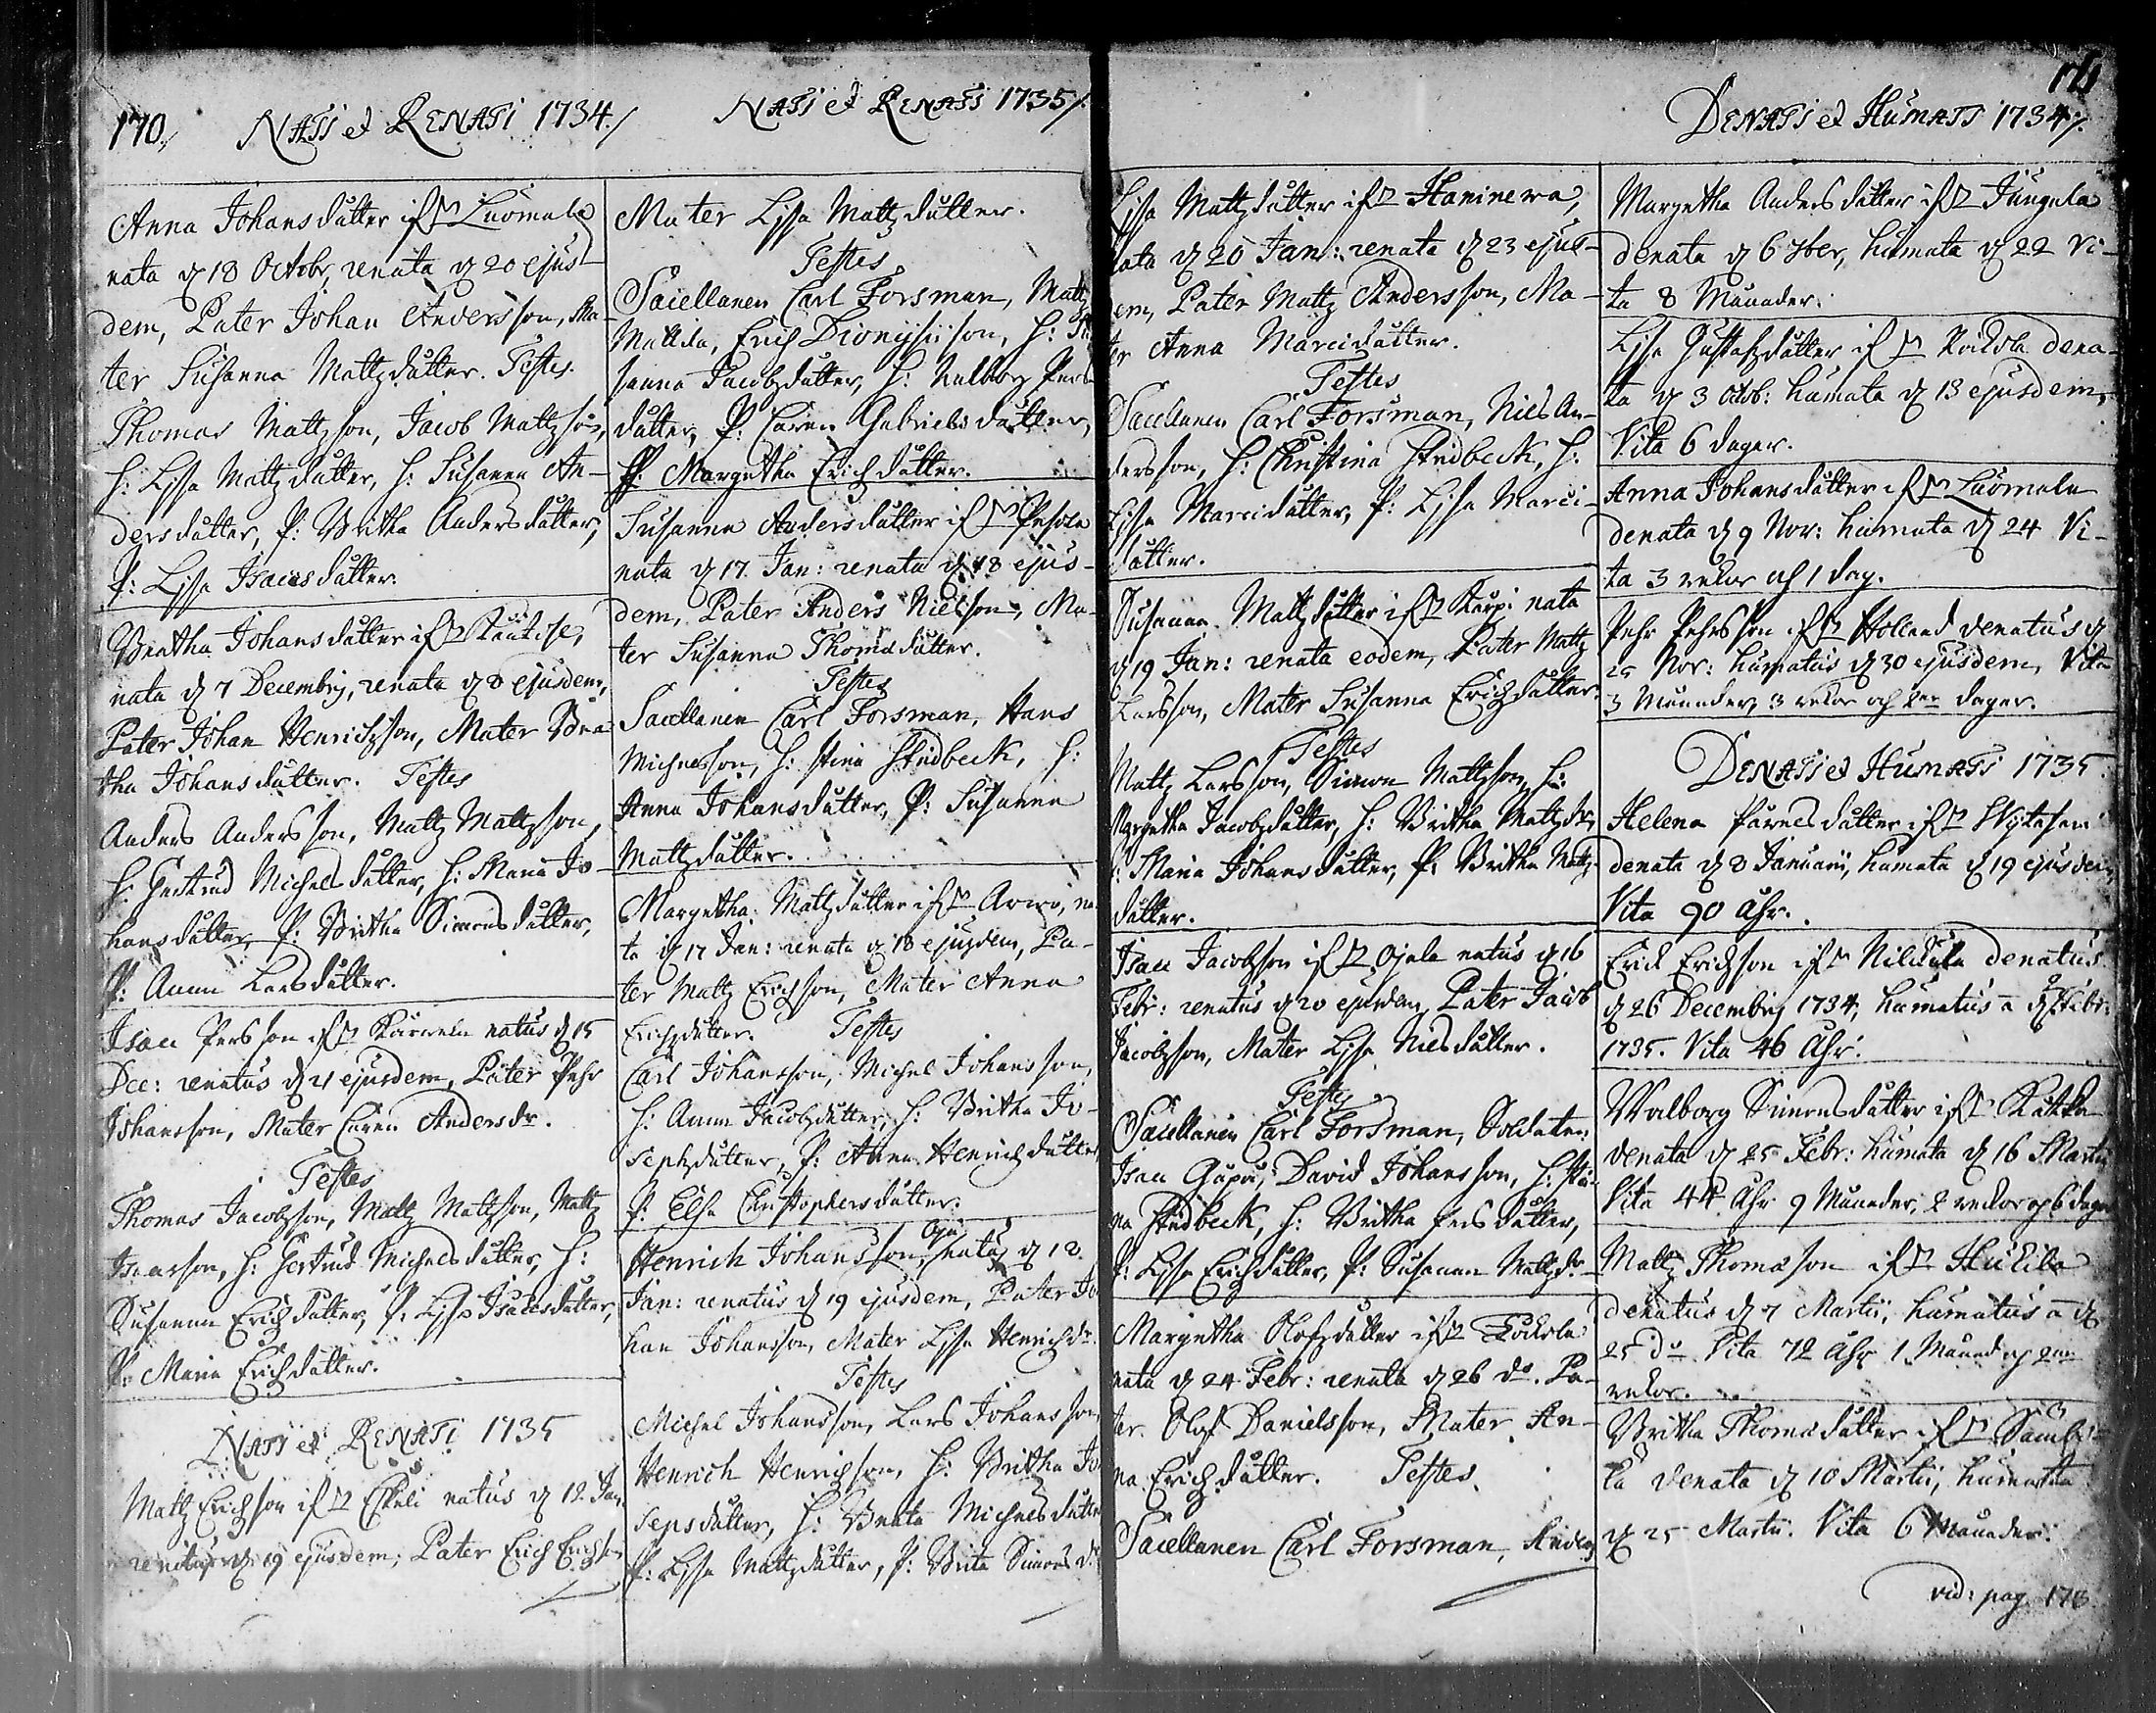 170./ NATI et RENATI 1734./
NATI et RENATI 1735/.
Anna Johansdåtter if Luomala
nata d 18 Octobr, renata d 20 ejus-
dem, Pater Johan Andersson, Ma-
ter Susanna Mattzdåtter. Testes.
Thomas Mattzson, Jacob Mattzson,
H: Lisa Mattzdåtter, H: Susanna An-
dersdåtter, P: Britha Andersdåtter,
P: Lisa Isacsdåtter.
Breatha Johansdåtter if
nata d 7 Decembrij, renata d 8 ejusdem,
Pater Johan Henrichzson, Mater Brea-
tha Johansdåtter. Testes
Anders Andersson, Mattz Mattzson,
H: Gertrud Michelsdåtter, H: Maria Jo-
hansdåtter, P: Britha Simonsdåtter,
P: Anna Larsdåtter.
Isac Persson if natus d 15
Dec: renatus d 21 ejusdem, Pater Pehr
Johansson, Mater Caren Andersdr.
Testes
Thomas Jacobzson, Mattz Mattzson, Mattz
H: Gertrud Michelsdåtter, H:
Susanna Erichdåtter, P: Lisa Isacsdåtter,
P: Maria Erichdåtter.
NATI et RENATI 1735
Mattz Erichson if Eskeli natus d 12 Jan
renatus d 19 ejusdem, Pater Erich Erichson
Mater Lisa Mattzdåtter.
Testes
Sacellanen Carl Forsman, Mattz
Mattila, Erich Dionysiison, H: Su
sanna Jacobzdåtter, H: Walborg Pers
dåtter, P: Caren Gabrielsdåtter,
P: Margetha Erichdåtter.
Susanna Andersdåtter if Pesola
nata d 17 Jan: renata d 18 ejus-
dem, Pater Anders Nielson, Ma-
ter Susanna Thomædåtter.
Testes
Sacellanen Carl Forsman, Hans
Michelsson, H: Stina Studbeck, H:
Anna Johansdåtter, P: Susanna
Mattzdåtter.
Margetha Mattzdåtter if Arwo, na
ta d 17 Jan: renata d 18 ejusdem, Pa-
ter Mattz Erichson, Mater Anna
Erichzdåtter. Testes
Carl Johansson, Michel Johansson,
H: Anna Jacobzdåtter, H: Britha Jo-
sephzdåtter, P: Anna Henrichdåtter
P: Elsa Christophersdåtter.
Henrich Johansson, natus d 18
Jan: renatus d 19 ejusdem, Pater Jo
han Johansson, Mater Lisa Henrichdr.
Testes
Michel Johansson, Lars Johansson,
Henrich Henrichson, H: Britha Jo
sepsdåtter, H: Breata Michelsdåtter
P: Lisa Mattzdåtter, P: Brita Simonsdr
171
DENATI et HUMATI 1734/.
Lisa Mattzdåtter if Haninewa,
nata d 20 Jan: renata d 23 ejus-
dem, Pater Mattz Andersson, Ma-
ter Anna Marcidåtter.
Testes
Sacellanen Carl Forsman, Niels An-
dersson, H: Christina Studbeck, H:
Lisa Marcidåtter, P: Lisa Marci-
dåtter.
Susanna Mattzdåtter if Karpi nata
d 19 Jan: renata eodem, Pater Mattz
Larsson, Mater Susanna Erichzdåtter.
Testes
Mattz Larsson, Simon Mattzson, H:
Margetha Jacobzdåtter, H: Britha Mattzdr,
P: Maria Johansdåtter, P: Britha Mattz
dåtter.
Isac Jacobzson if Ojala natus d 16
Febr: renatus d 20 ejusdem, Pater Jacob
Jacobzson, Mater Lisa Nielsdåtter.
Testes
Sacellanen Carl Forsman, Soldaten
Isac David Johansson, H: Sti-
na Studbeck, H: Britha Persdåtter,
P: Lisa Erichdåtter, P: Susanna Mattzdr.
Margetha Olofzdåtter if
nata d 24 Febr: renata d 26 do. Pa-
ter Olof Danielsson, Mater An-
na Erichdåtter. Testes.
Sacellanen Carl Forsman, Anders
Margetha Andersdåtter if Jungula
denata d 6 9ber, humata d 22 Vi-
ta 8 Månader.
Lisa Gustafzdåtter if dena-
ta d 3 Octob: humata d 13 ejusdem,
Vita 6 dagar.
Anna Johansdåtter if Luomala
denata d 9 Nov: humata d 24 Vi-
ta 3 wekor och 1 dag.
Pehr Pehrsson if Holland denatus d
25 Nov: humatus d 30 ejusdem, Vita
3 Månader, 3 wekor och 2ne dagar.
DENATI et HUMATI 1735.
Helena if
denata d 8 Januarii, humata d 19 ejusdem,
Vita 90 åhr.
Erich Erichson if denatus
d 26 Decembrij 1734, humatus d Febr:
1735. Vita 46 Åhr.
Walborg Simonsdåtter if
denata d 25 Febr: humata d 16 Martii
Vita 44 åhr 9 Månader, 2 wekor och 6 dagar
Mattz Thomæson if Huckila
denatus d 7 Martii, humatus d
25 do Vita 72 åhr 1 Månad och 2ne
wekor.
Britha Thomædåtter if
la denata d 10 Martii, humata
d 25 Martii. Vita 6 Månader.
vid: pag 173